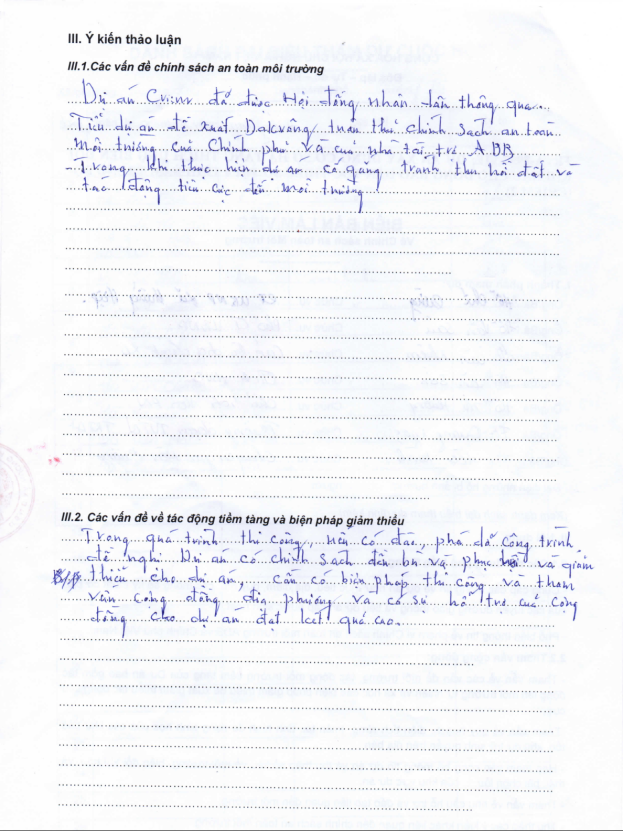 III. Ý kiến thảo luận
III.1.Các vấn đề chính sách an toàn môi trường
Dự án đã được Hội đồng nhân dân thông qua.
Tiểu dự án đề xuất Dakrông tuân thủ chính sách an toàn
môi trường của Chính phủ và của nhà tài trợ ADB
Trong khi thực hiện dự án cố gắng tránh thu hồi đất và
tác động tiêu cực đến môi trường
III.2. Các vấn đề về tác động tiềm tàng và biện pháp giảm thiểu
Trong quá trình thi công, nếu có đào, phá dỡ công trình
đề nghị Dự án có chính sách đền bù và phục hồi và giảm
thiểu cho dự án, cần có biện pháp thi công và tham
vấn cộng đồng địa phương và có sự hỗ trợ của cộng
đồng cho dự án đạt kết quả cao.